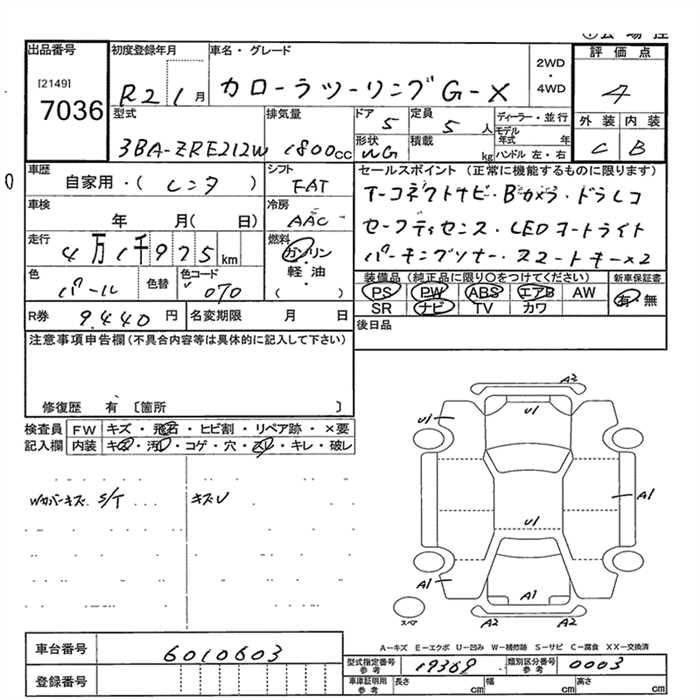 出品番号 初度登録年月 車名・グレード 2WD・4WD 評価点
[2149]
7036 R2 1月 カローラツーリングG-X 4
型式 排気量 ドア 定員 ディーラー・並行 外装 内装
3BA-ZRE212W 1800cc 5 5人 モデル年式 年 C B
形状 積載 ハンドル 左・右
WG kg
車歴 シフト セールスポイント(正常に機能するものに限ります)
自家用・(レンタ) FAT T-コネクトナビ・Bカメラ・ドラレコ
車検 冷房
年 月(日) AAC セーフティセンス・LEDオートライト
走行 燃料
4万1千975km ガソリン パーキングソナー・スマートキー×2
軽・油
( . )
色 色替 色コード 装備品(純正品に限り○をつけてください) 新車保証書
パール 070 PS PW ABS エアB AW 有・無
SR ナビ TV カワ
R券 9,440円 名変期限 月 日 後日品
注意事項申告欄(不具合内容等は具体的に記入して下さい)
修復歴 有 〔箇所 〕
検査員 FW キズ・飛石・ヒビ割・リペア跡・×要
記入欄 内装 キズ・汚レ・コゲ・穴・スレ・キレ・破レ
Wカバーキズ S/T キズU
A2
U1 U1
A1
U1
A1 A1
A2 A2
スペア
A-キズ E-エクボ U-凹み W-補修跡 S-サビ C-腐食 XX-交換済
車台番号 6010603
型式指定番号 参考 19369 類別区分番号 参考 0003
登録番号 車庫証明用 参考 長さ cm 幅 cm 高さ cm